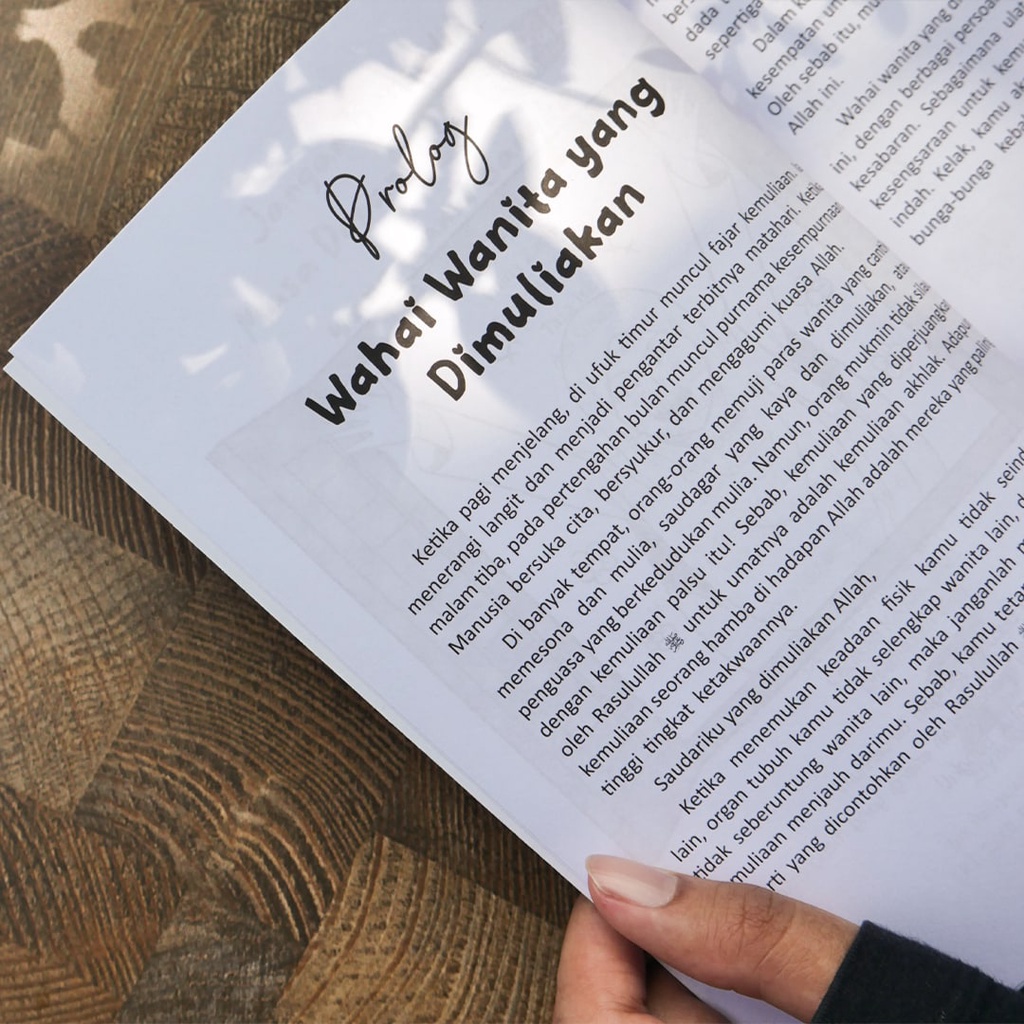 Prolog
Wahai Wanita yang
Dimuliakan
Ketika pagi menjelang, di ufuk timur muncul fajar kemuliaan.
menerangi langit dan menjadi pengantar terbitnya matahari. Ketika
malam tiba, pada pertengahan bulan muncul purnama kesempurnaan.
Manusia bersuka cita, bersyukur, dan mengagumi kuasa Allah.
Di banyak tempat, orang-orang memuji paras wanita yang
memesona dan mulia, saudagar yang kaya dan dimuliakan,
penguasa yang berkedudukan mulia. Namun, orang mukmin tidak
dengan kemuliaan palsu itu! Sebab, kemuliaan yang diperjuangkan
oleh Rasulullah ﷺ untuk umatnya adalah kemuliaan akhlak.
kemuliaan seorang hamba di hadapan Allah adalah mereka yang
tinggi tingkat ketakwaannya.
Saudariku yang dimuliakan Allah,
Ketika menemukan keadaan fisik kamu tidak
lain, organ tubuh kamu tidak selengkap wanita lain,
tidak seberuntung wanita lain, maka janganlah
muliaan menjauh darimu. Sebab, kamu
rti yang dicontohkan oleh Rasulullah
dada
sepertiga
Dalam
kesempatan
Oleh sebab itu,
Allah ini.
Wahai wanita yang
ini, dengan berbagai
kesabaran. Sebagaimana
kesengsaraan untuk
indah. Kelak, kamu
bunga-bunga